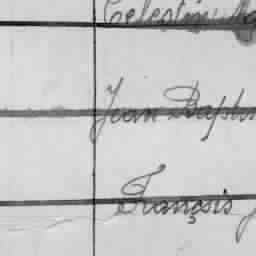 Celestin
Jean Bapt
François